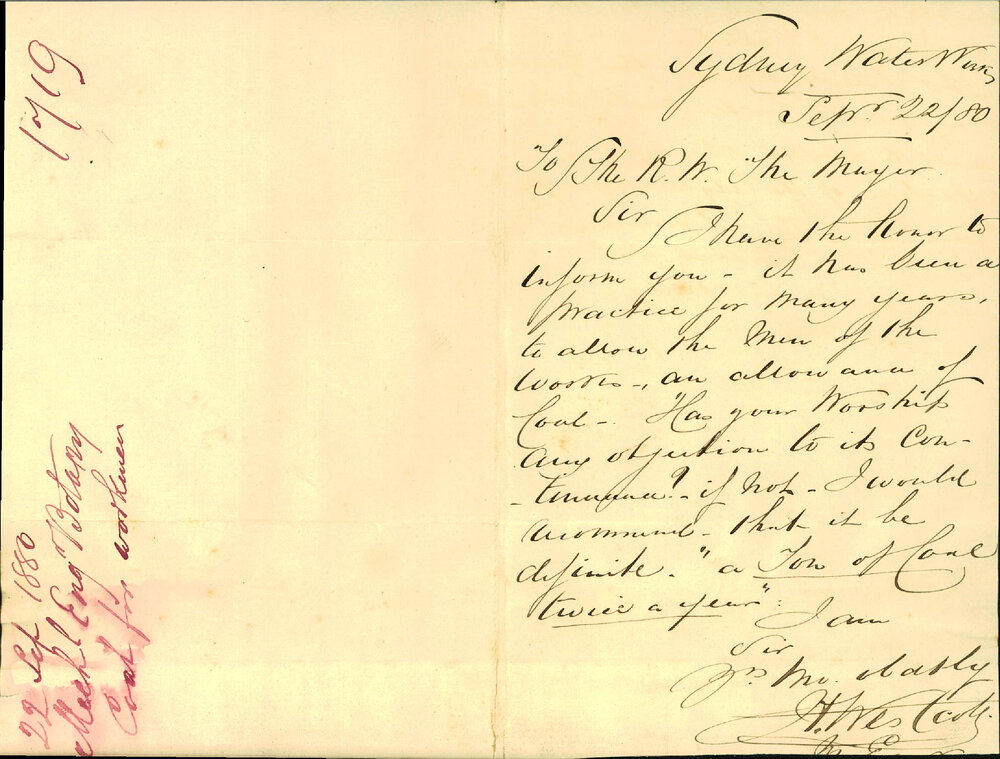 1719
22 Sep 1880
Mechl Engr Botany
Coal for workmen
Sydney Water Works
Sepr 22/80
To The R. W. The Mayor.
Sir I have the honor to
inform you - it has been a
practice for many years,
to allow the Men of the
works -, an allowance of
Coal - "Has your Worship
any objection to its con-
-tinuance? - if not - I would
recommend - that it be
definite - "a Ton of Coal
twice a year".
I am
Sir
Yrs Mo. obdtly
H. Westcott
M. E.